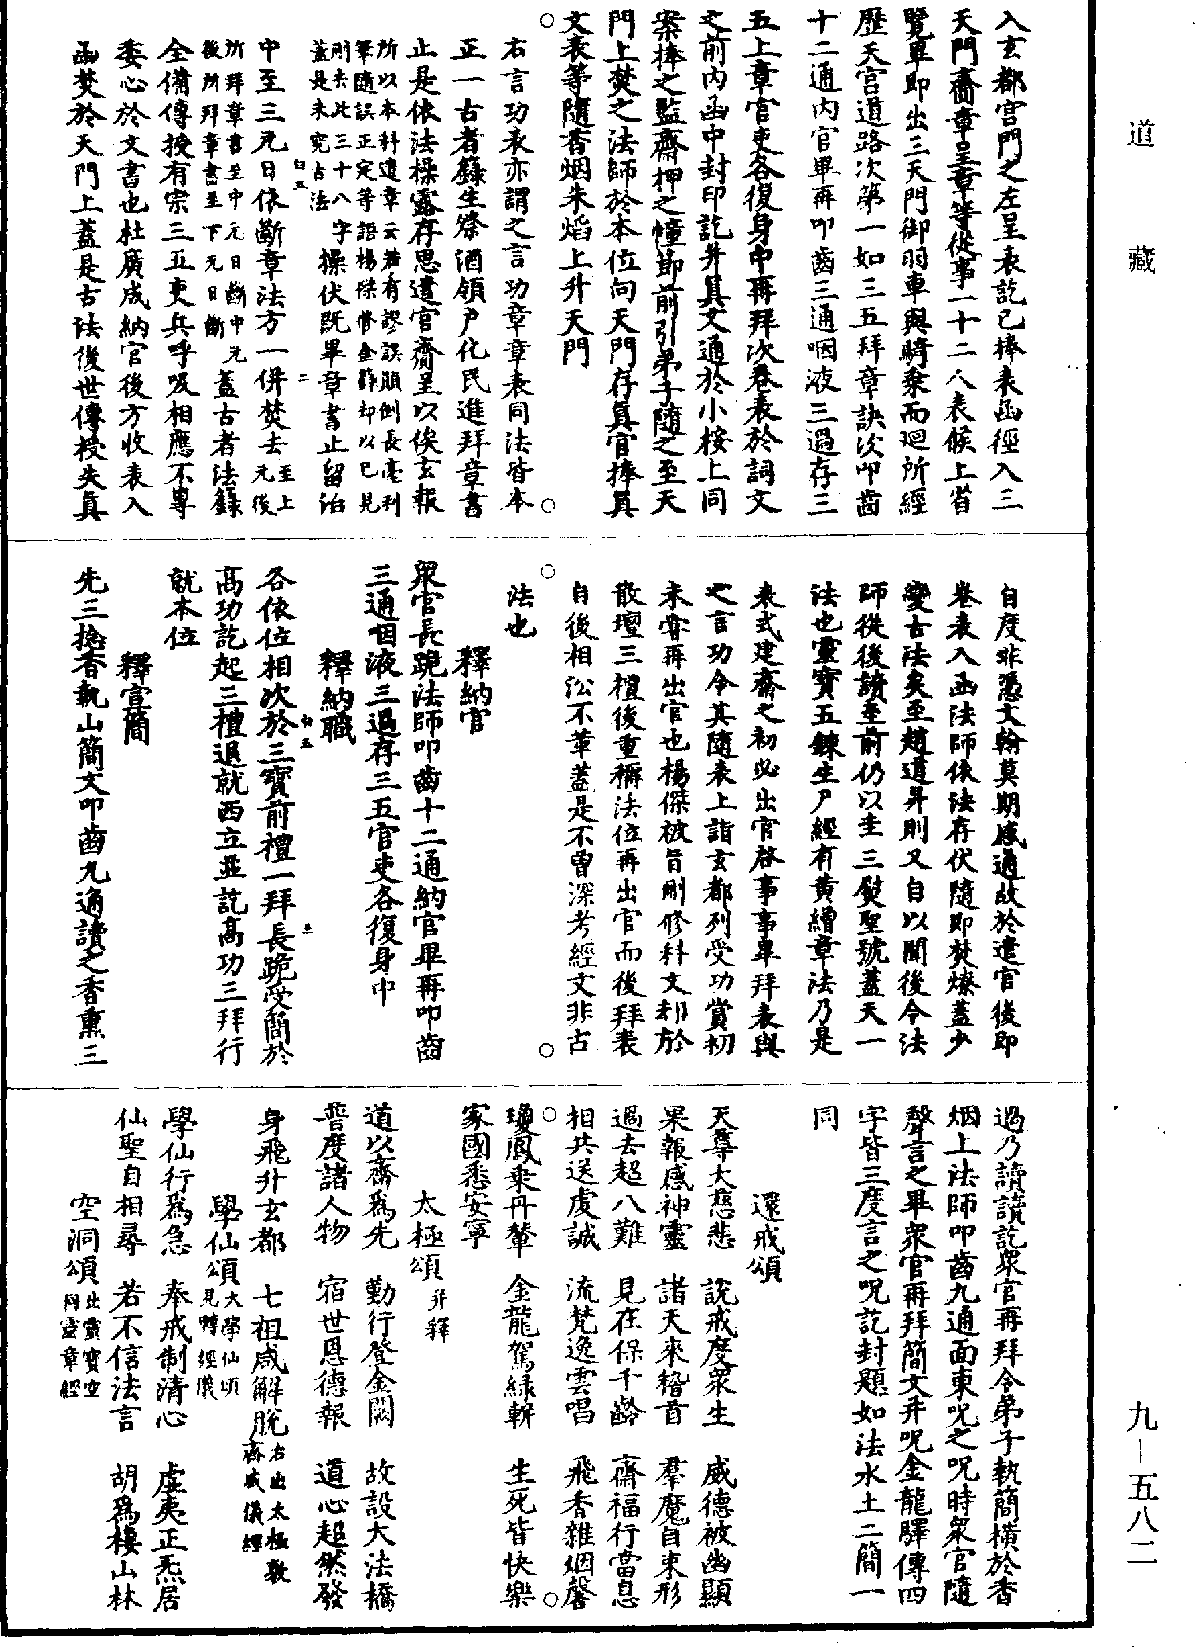 道藏
九—五八二
入玄都宮門之左呈表訖已捧表函徑入三
天門齎章呈章等從事一十二人表候上省
覽畢即出三天門御羽車與騎乘而迴所經
歷天宮道路次第一如三五拜章訣次叩齒
十二通內官畢再叩齒三通咽液三過存三
五上章官吏各復身中再拜次卷表於詞文
之前內函中封印訖并具文通於小桉上同
案捧之監齋押之幢節前引弟子隨之至天
門上焚之法師於本位向天門存真官捧真
文表等隨香烟朱焰上升天門
○ ○
右言功表亦謂之言功章章表同法皆本
正一古者籙生祭酒領戶化民進拜章書
止是依法操露存思遣官齎呈以俟玄報
所以本科遣章云若有謬誤顛倒長毫利
筆隨誤正定等語楊傑修金籙却以已見
刪去此三十八字
蓋是未究古法
操伏既畢章書止留治
中至三元日依斷章法方一併焚去
至上元後
所拜章書至中元日斷中元
後所拜章書至下元日斷
蓋古者法籙
全備傳授有宗三五吏兵呼吸相應不專
委心於文書也杜廣成納官後方收表入
函焚於天門上蓋是古法後世傳授失真
自度非憑文翰莫期感通故於遣官後即
卷表入函法師依法存伏隨即焚燎蓋少
變古法矣至趙道昇則又自以聞後令法
師從後讀至前仍以圭三熨聖號蓋天一
法也靈寶五鍊生尸經有黃繒章法乃是
表式建齋之初必出官啓事事畢拜表與
之言功令其隨表上詣玄都列受功賞初
未嘗再出官也楊傑被旨刪修科文却於
散壇三禮後重稱法位再出官而後拜表
自後相沿不革蓋是不曾深考經文非古
○ ○
法也
釋納官
眾官長跪法師叩齒十二通納官畢再叩齒
三通咽液三過存三五官吏各復身中
釋納職
各依位相次於三寶前禮一拜長跪受簡於
高功訖起三禮退就西立並訖高功三拜行
就本位
釋宣簡
先三捻香執山簡文叩齒九通讀之香熏三
過乃讀讀訖眾官再拜令弟子執簡橫於香
烟上法師叩齒九通面東呪之呪時眾官隨
聲言之畢眾官再拜簡文并呪金龍驛傳四
字皆三度言之呪訖封題如法水土二簡一
同
還戒頌
天尊大慈悲 說戒度眾生 威德被幽顯
果報感神靈 諸天來稽首 羣魔自束形
過去超八難 見在保千齡 齋福行當息
相共送虔誠 流梵逸雲唱 飛香雜烟馨
○ ○
瓊鳳乘丹輦 金龍駕綠軿 生死皆快樂
家國悉安寧
太極頌并釋
道以齋為先 勤行登金闕 故設大法橋
普度諸人物 宿世恩德報 道心超然發
身飛升玄都 七祖咸解脫
右出太極敷
齋威儀經
學仙頌
大學仙頌
見轉經儀
學仙行為急 奉戒制清心 虛夷正炁居
仙聖自相尋 若不信法言 胡為棲山林
空洞頌
出靈寶空
洞靈章經